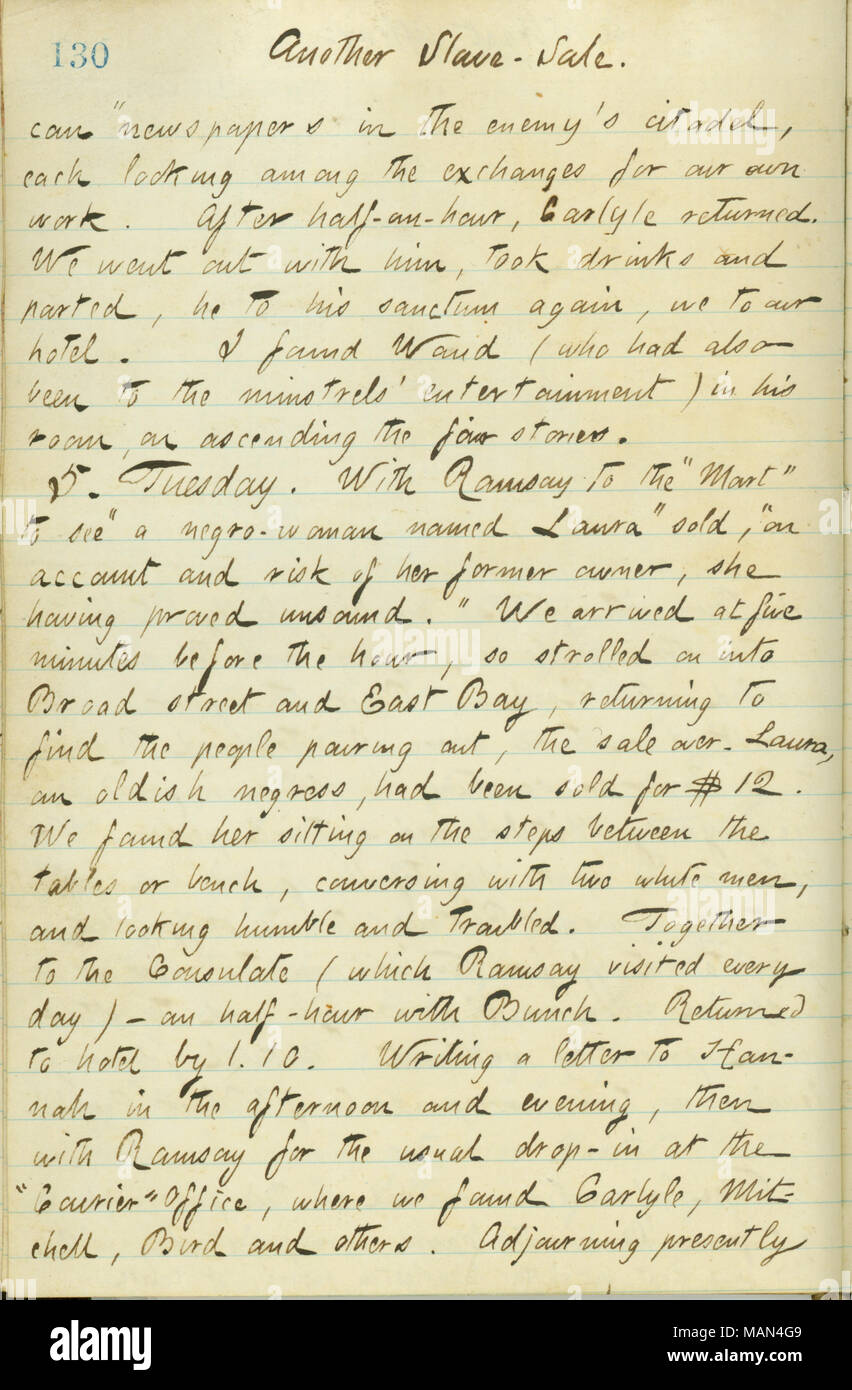 130 Another Slave-Sale.
can "newspapers in the enemy's citadel,
each looking among the exchanges for our own
work. After half-an-hour, Carlyle returned.
We went out with him, took drinks and
parted, he to his sanctum again, we to our
hotel. I found Waud (who had also
been to the minstrels' entertainment) in his
room, on ascending the four stories.
5. Tuesday. With Ramsay to the "Mart"
to see "a negro-woman named Laura" sold, "on
account and risk of her former owner, she
having proved unsound." We arrived at five
minutes before the hour, so strolled on into
Broad street and East Bay, returning to
find the people pouring out, the sale over. Laura,
an oldish negress, had been sold for $12.
We found her sitting on the steps between the
tables or bench, conversing with two white men,
and looking humble and troubled. Together
to the Consulate (which Ramsay visited every
day) - an half-hour with Bunch. Returned
to hotel by 1.10. Writing a letter to Han-
nah in the afternoon and evening, then
with Ramsay for the usual drop-in at the
"Courier" Office, where we found Carlyle, Mit-
chell, Bird and others. Adjourning presently
alamy
alamy
Image ID: MAN4G9
www.alamy.com